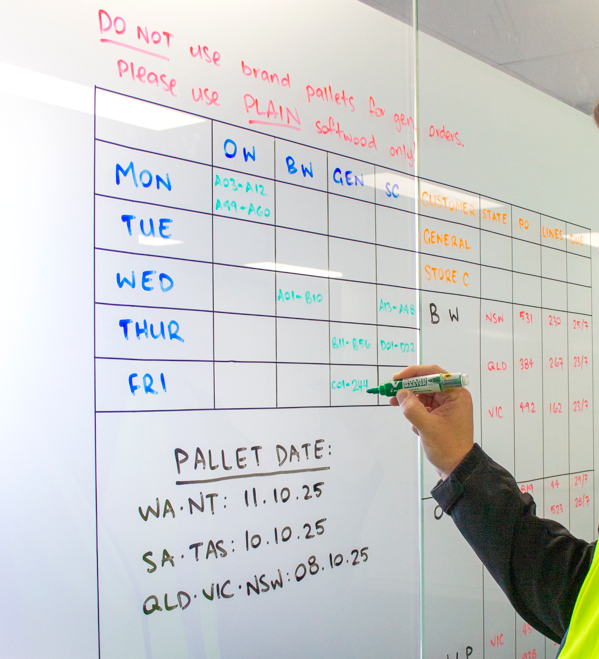 DO NOT use brand pallets for gen orders.
Please use PLAIN softwood only!
OW BW GEN SC
MON A03-A12
A49-A60
TUE
WED A01-B10 A13-A48
THUR B11-B56 D01-D02
FRI C01-244
PALLET DATE:
WA·NT: 11.10.25
SA·TAS: 10.10.25
QLD·VIC·NSW: 08.10.25
CUSTOMER STATE PO LINES
GENERAL
STORE C
BW NSW 531 230 25/7
QLD 384 267 23/7
VIC 492 162 23/7
44 29/7
523 28/7
VIC